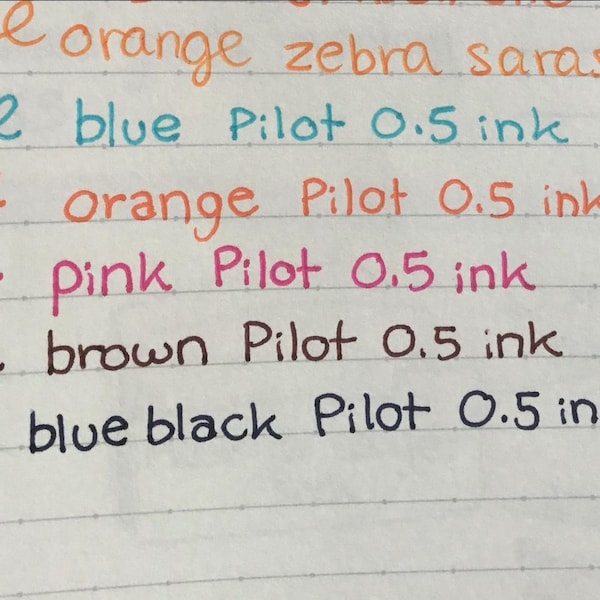 orange zebra saras
blue Pilot 0.5 ink
orange Pilot 0.5 ink
pink Pilot 0.5 ink
brown Pilot 0.5 ink
blue black Pilot 0.5 in